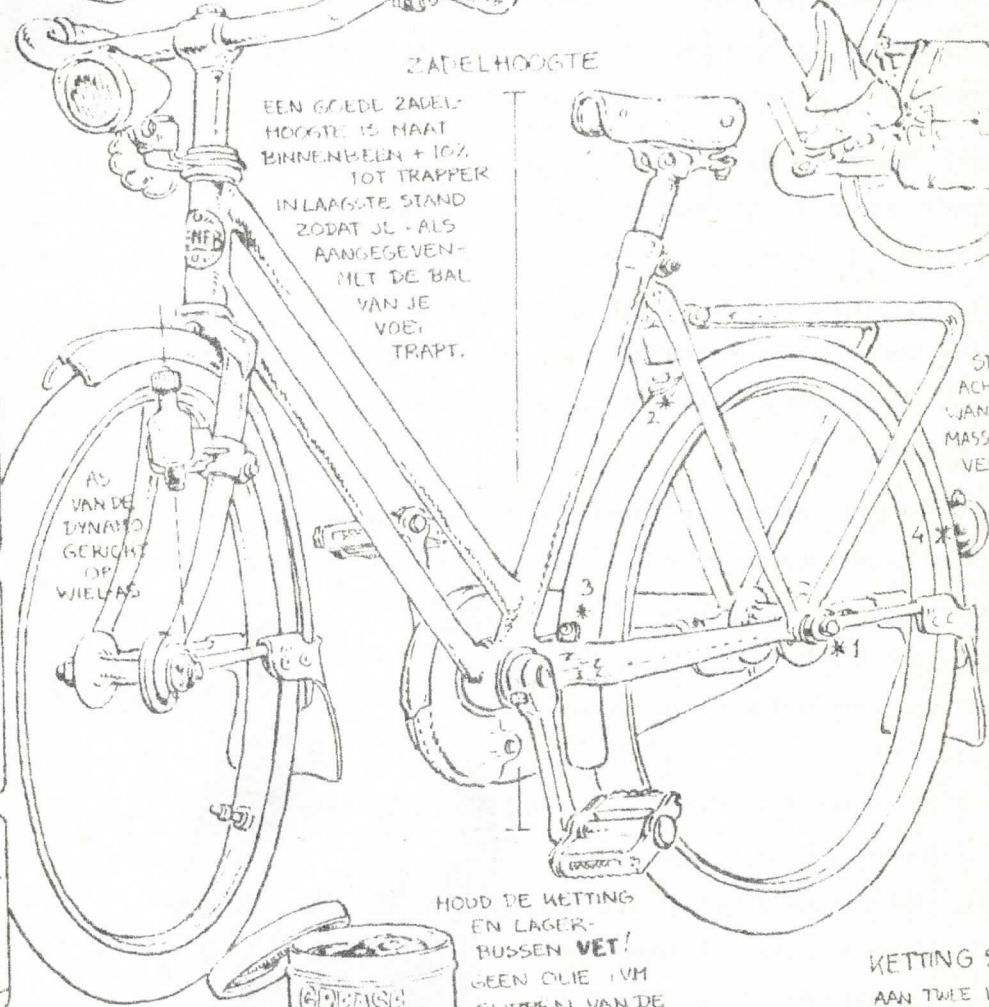 ZADELHOOGTE
EEN GOEDE ZADEL-
HOOGTE IS MAAT
BINNENBEEN + 10%
TOT TRAPPER
IN LAAGSTE STAND
ZODAT JE - ALS
AANGEGEVEN -
MET DE BAL
VAN JE
VOET
TRAPT.
ENFB
AS
VAN DE
DYNAMO
GERICHT
OP
WIEL-AS
2*
3
*
4*
*1
ST
ACH
WAN
MASS
VE
HOUD DE KETTING
EN LAGER-
BUSSEN VET!
GEEN OLIE IVM
VAN DE
GREASE
KETTING S
AAN TWEE